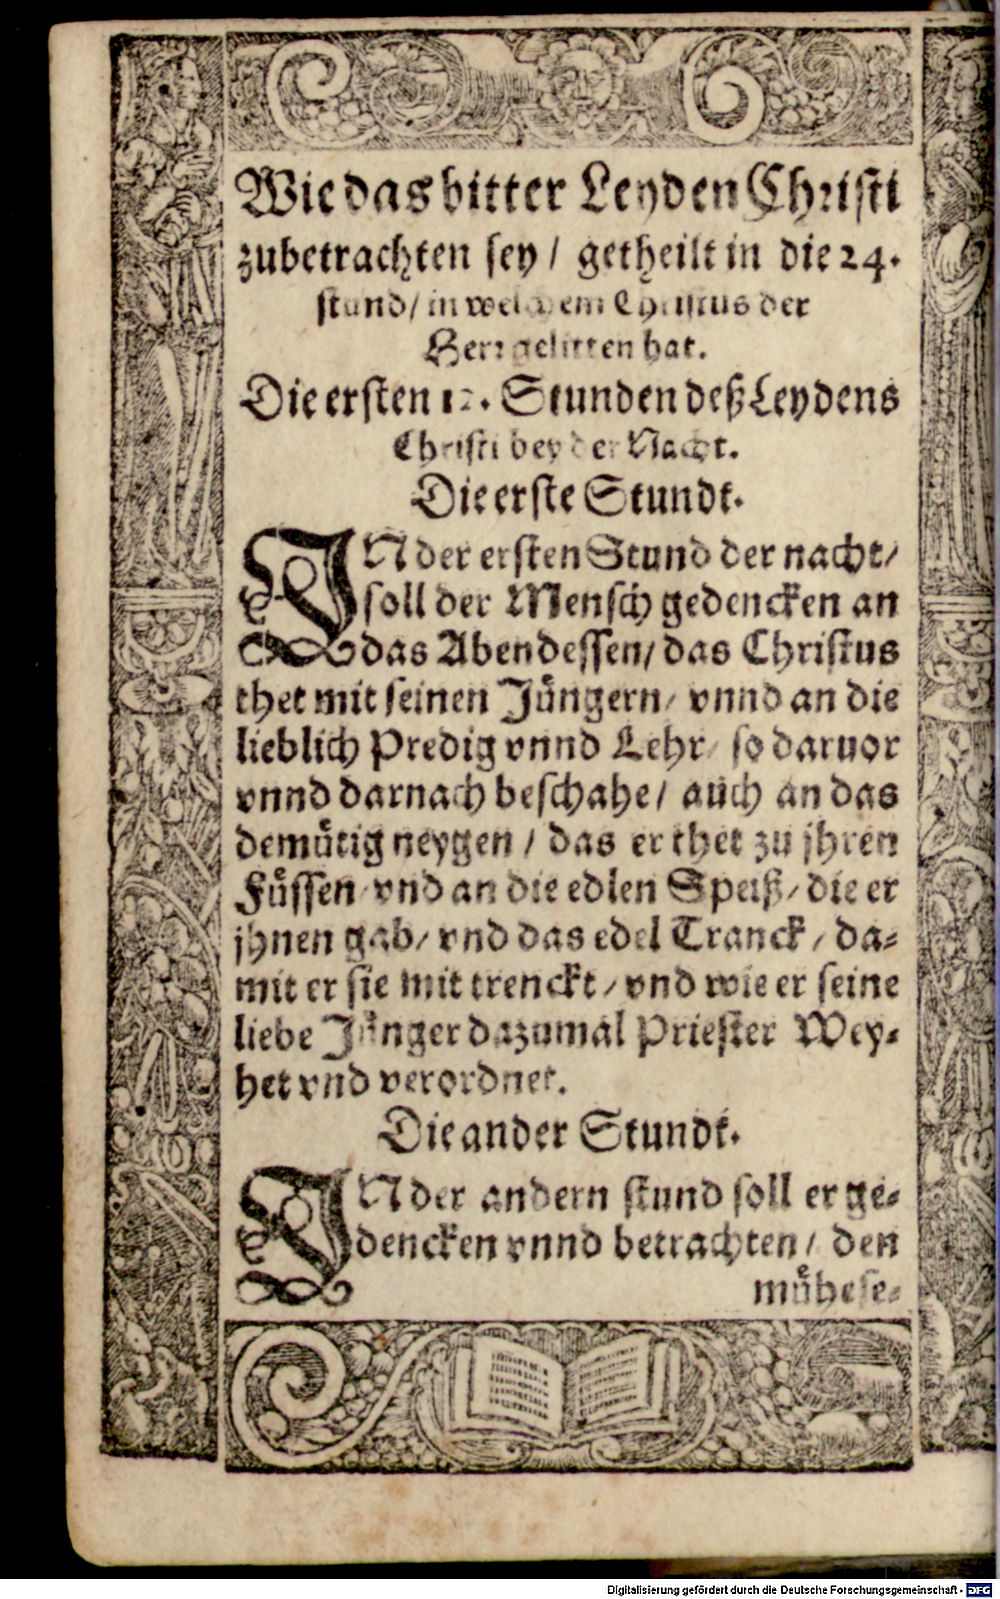 Wie das bitter Leyden Christi
zubetrachten sey / getheilt in die 24.
stund / in welchem Christus der
Herr gelitten hat.
Die ersten 12. Stunden deß Leydens
Christi bey der Nacht.
Die erste Stundt.
IN der ersten Stund der nacht /
soll der Mensch gedencken an
das Abendessen / das Christus
thet mit seinen Jüngern / vnnd an die
lieblich Predig vnnd Lehr / so daruor
vnnd darnach beschahe / auch an das
demütig neygen / das er thet zu jhren
Füssen / vnd an die edlen Speiß / die er
jhnen gab / vnd das edel Tranck / da-
mit er sie mit trenckt / vnd wie er seine
liebe Jünger dazumal Priester Wey-
het vnd verordnet.
Die ander Stundt.
IN der andern stund soll er ge-
dencken vnnd betrachten / den
mühese-
Digitalisierung gefördert durch die Deutsche Forschungsgemeinschaft - DFG